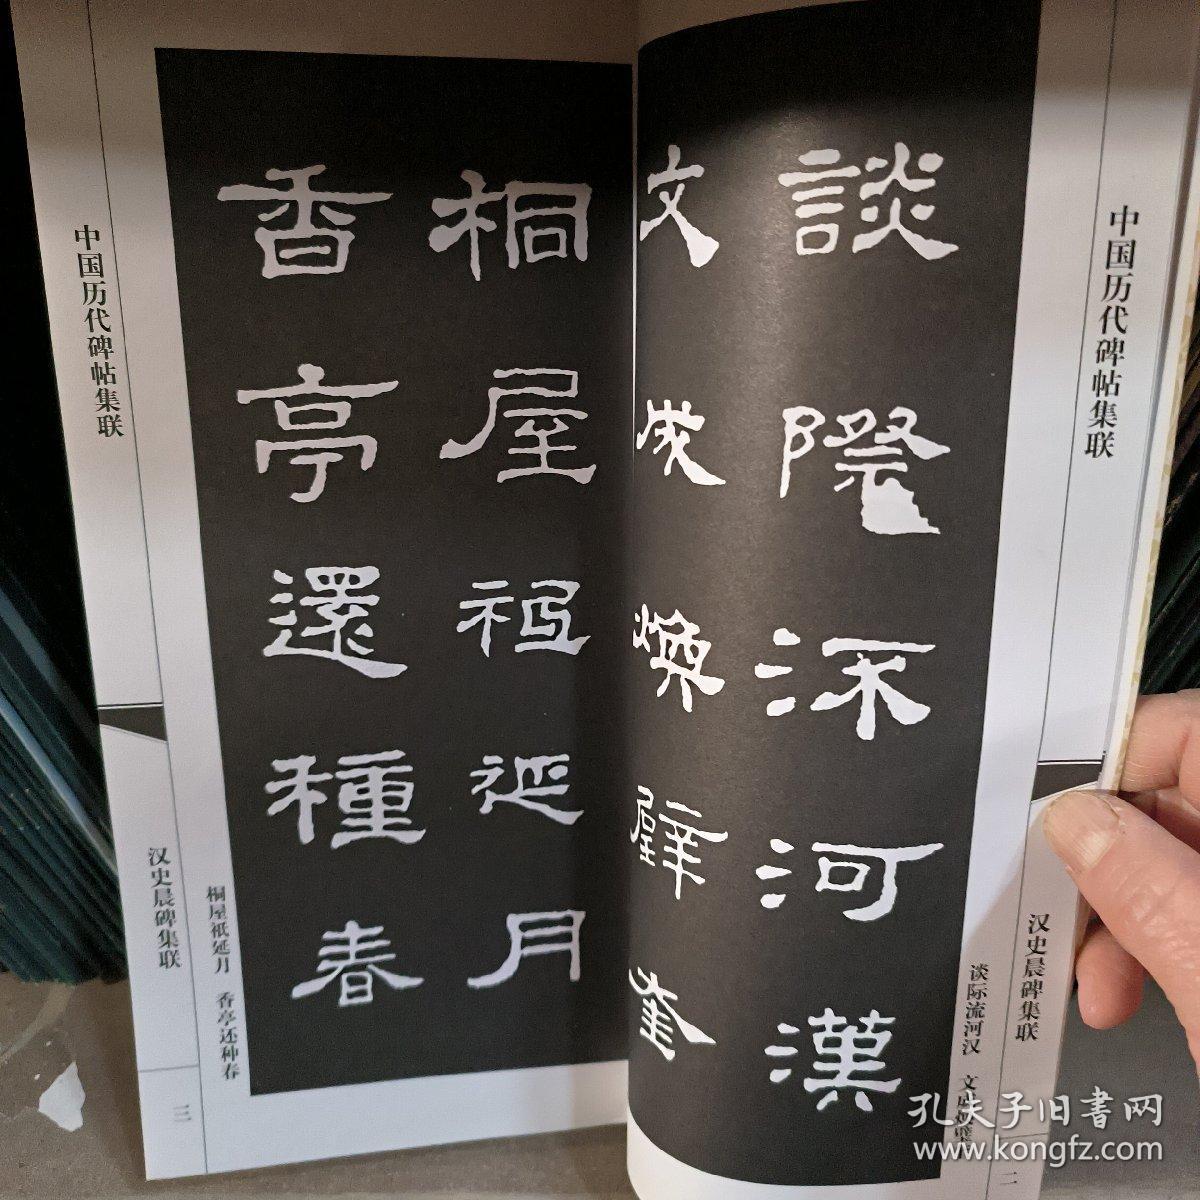 中国历代碑帖集联
汉史晨碑集联
二
談際流河漢
文成煥壁奎
谈际流河汉 文成焕壁
桐屋祗延月
香亭還種春
桐屋祇延月 香亭还种春
中国历代碑帖集联
汉史晨碑集联
三
孔夫子旧书网
www.kongfz.com